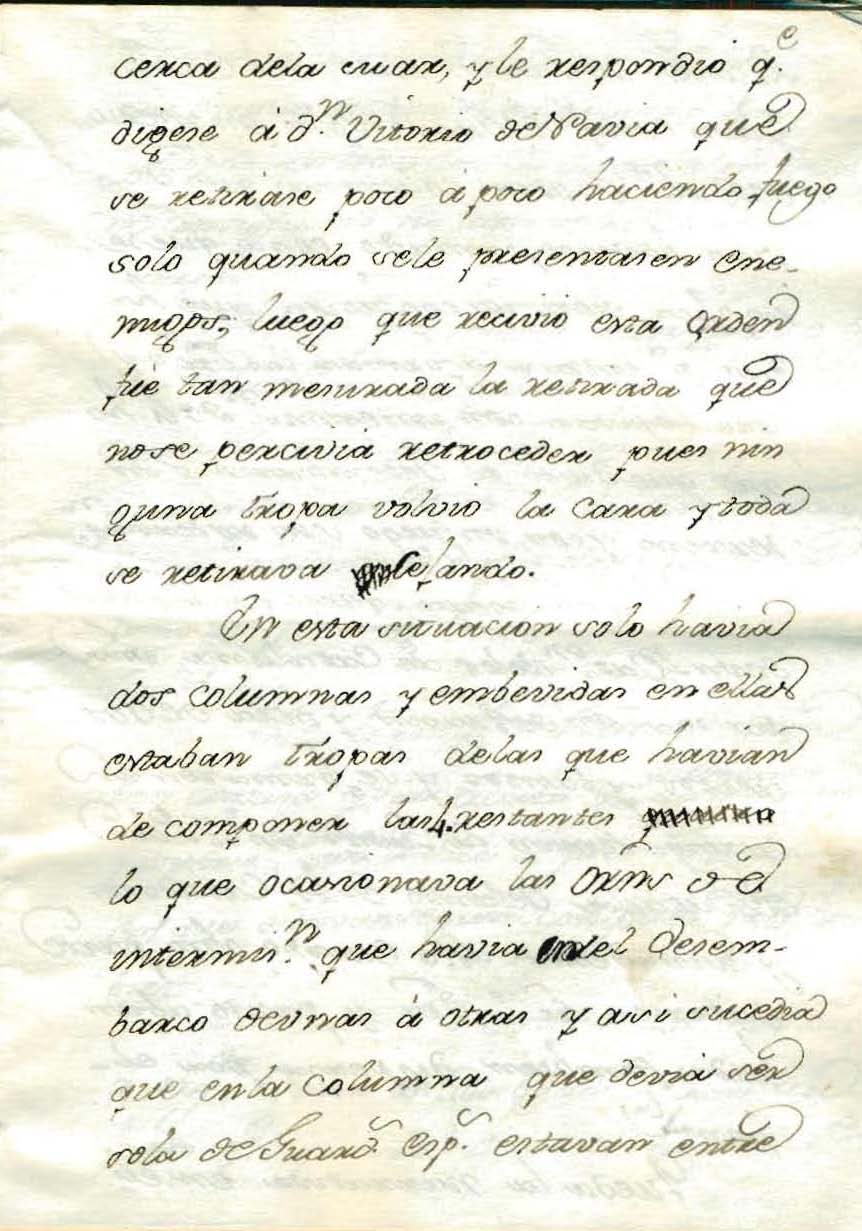 cerca dela mar, y le respondió q.e
digese á d.n Vitorio de Navia que
se retirase poco á poco haciendo fuego
solo quando sele presentasen ene-
migos; luego que recivio esta orden
fue tan mesurada la retirada que
nose percivia retroceder pues nin
guna tropa volvio la cara y toda
se retirava
En esta situacion solo havia
dos columnas y embevidas en ellas
estaban tropas delas que havian
de componer las 4. restantes
lo que ocasionava las orns de
intermis.n que havia en el desem-
barco de unas á otras y asi sucedia
que enla columna que devia ser
sola de Guard.s Esp.s estavan entre